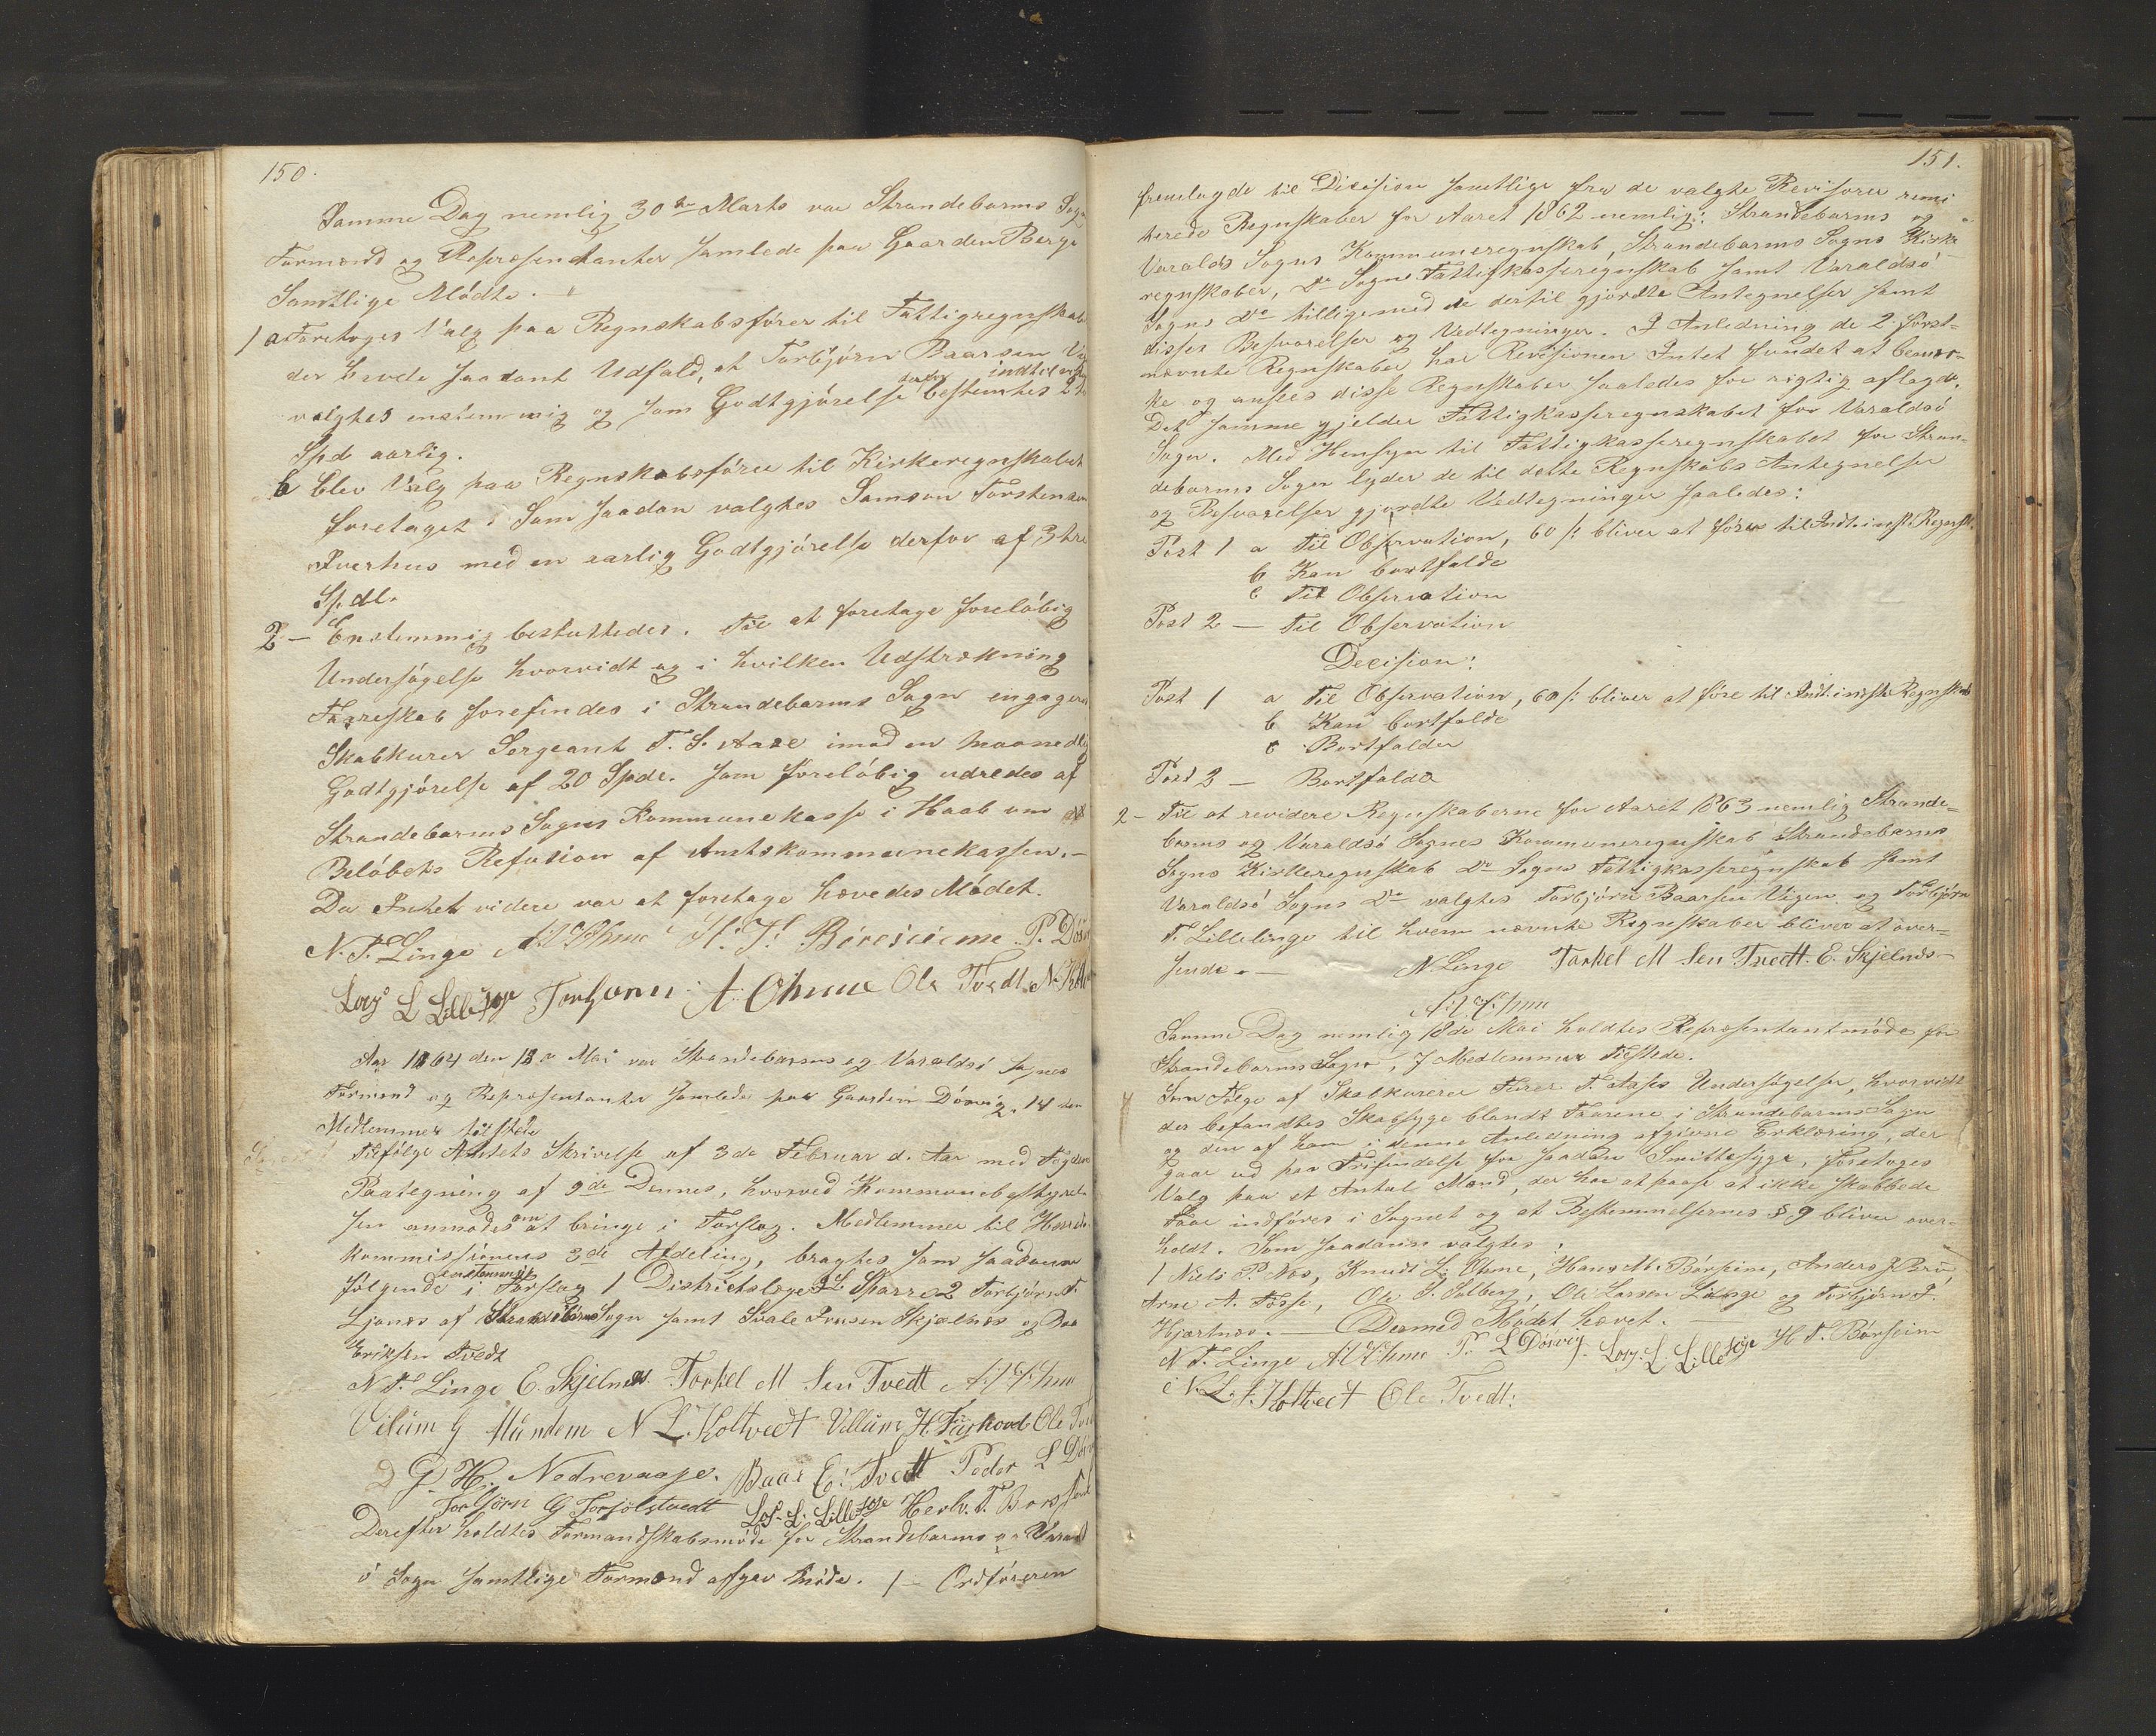 150.
Samme Dag nemlig 30te Marts var Strandebarms Sogns
Formænd og Repræsentanter samlede paa Gaarden Berge
Samtlige Mødte.
1 a Foretoges Valg paa Regnskabsfører til Fattigregnskabet
der havde saadant Udfald, at Torbjørn Baarsen
valgtes enstemmig og som Godtgjørelse derfor bestemtes indtil 2
Spd aarlig.
b blev Valg paa Regnskabsfører til Kirkeregnskabet
foretaget. Som saadan valgtes Samson Torstensen
Tverhus med en aarlig Godtgjørelse derfor af 3 tre
Spdl.
2 – Enstemmig besluttedes. Til at foretage foreløbig
Undersøgelse hvorvidt og i hvilken Udstrækning
Faareskab forefindes i Strandebarms Sogn engageres
Skabkurer Sergeant T. S. Aase imod en maanedlig
Godtgjørelse af 20 Spdl. som foreløbig udredes af
Strandebarms Sogns Kommunekasse i Haab om
Beløbets Refusion af Amtskommunekassen. –
Da Intet videre var at foretage hævedes Mødet.
N. T. Linge A L Øhme H. T. Børsieime P. Døsvi
Lars L Lilletøge Torbjørn A. Øhme Ole Tvedt N. Kolt
Aar 1864 den 18de Mai var Strandebarms og Varaldsø Sognes
Formænd og Repræsentanter samlede paa Gaarden Døsvig. 14 den
Medlemmer tilstede
Tilfølge Amtets Skrivelse af 3de Februar d. Aar med Fogdens
Paategning af 9de Dennes, hvorved Kommunebestyrel-
sen anmodes om at bringe i Forslag. Medlemmer til Herreds-
kommissionens 3de Afdeling, bragtes som saadanne
følgende enstemmig i Forslag 1 Districtslæge Sparre 2 Torbjørn T.
Ljones af Strandebarms Sogn samt Svale Iversen Skjælnes og Baar
Eriksen Tvedt
N T. Linge E. Skjelnes. Torkel M sen Tvedt A L Øhme
Vilum G Mundem N L. Koltvedt Villum H. Fuskeod Ole Tvedt
G. H. Nedrevaage. Baar E. Tvedt Peder L Døsvig
Torbjørn G Torsjolstvedt Lars L. Lilletøge Herlv. T. Børsheim
Derefter holdtes Formandskabsmøde for Strandebarms og Varalds
ø Sogn samtlige Formænd afgav Møde. 1 – Ordføreren
151.
fremlagde til Decision samtlige fra de valgte Revisorer remi
terede Regnskaber for Aaret 1862 nemlig: Strandebarms og
Varalds Sogns Kommuneregnskab, Strandebarms Sogns Kirke
regnskaber, Do Sogns Fattigkasseregnskab samt Varaldsø
Sogns do tilligemed de dertil gjordte Antegnelser samt
disses Besvarelser og Vedtegninger. I Anledning de 2 først-
nævnte Regnskaber har Revisionen Intet fundet at bemær-
ke og ansees disse Regnskaber saaledes for rigtig aflagde.
Det samme gjelder Fattigkasseregnskabet for Varaldsø
Sogn. Med Hensyn til Fattigkasseregnskabet for Stran-
debarms Sogn lyder de til dette Regnskabs Antegnelser
og Besvarelser gjordte Vedtegninger saaledes:
Post 1 a Til Observation, 60 ß bliver at føre til Indt. i næste Regnsk.
b Kan bortfalde
c Til Observation
Post 2 – Til Observation
Decision:
Post 1 a Til Observation, 60 ß bliver at føre til Indt. i næste Regnskab
b Kan bortfalde
c Bortfalder
Post 2 – Bortfalder
2 – Til at revidere Regnskaberne for Aaret 1863 nemlig Strande-
barms og Varaldsø Sognes Kommuneregnskab Strandebarms
Sogns Kirkeregnskab Do Sogns Fattigkasseregnskab samt
Varaldsø Sogns Do valgtes Torbjørn Baarsen Vigen og Torbjørn
T. Lillelinge til hvem nævnte Regnskaber bliver at over-
sende. – N Linge Torkel M sen Tvedt. E. Skjelnes
A L Øhme
Samme Dag nemlig 18de Mai holdtes Repræsentantmøde for
Strandebarms Sogn, 7 Medlemmer Tilstede.
Som Følge af Skabkurerer Furer T. Aases Undersøgelser, hvorvidt
der befandtes Skabsyge blandt Faarene i Strandebarms Sogn
og den af ham i denne Anledning afgivne Erklæring, der
gaar ud paa Trifindelse for saadan Smittesyge, foretoges
Valg paa et Antal Mænd, der har at paase at ikke skabbede
Faar indføres i Sognet og at Bestemmelsernes § 9 bliver over-
holdt. Som saadanne valgtes:
1 Niels P. Nes, Knud L. Øhme, Hans M. Børsiem, Anders J Bru
Arne A. Fosse, Ole S. Solberg, Ole Larsen Linge og Torbjørn J.
Hjærtnæs. – Dermed Mødet hævet.
N T. Linge A L Øhme P. L Døsvig. Lars. L. Lilletøge H T. Børseim
N L. Koltvedt Ole Tvedt: